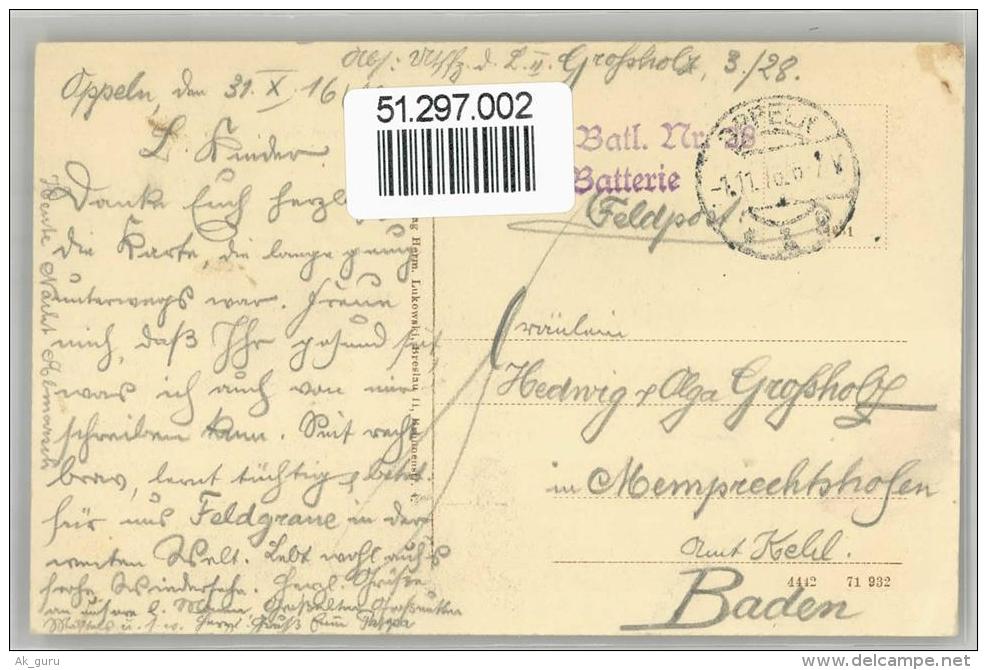 Abs: Utffz. d. L. II. Großholz, 3./28.
Oppeln, den 31. X. 16
51.297.002
L. Kinder.
Batl. Nr. 38
Batterie
OPPELN
-1.11.16. 6-7 V
Feldpost.
Danke Euch herzl
die Karte, die lange genug
unterwegs war. Freue
mich, daß Ihr gesund seit
was ich auch von mir
schreiben kann. Seit recht
brav, lernt tüchtig u. betet
für uns Feldgraue in der
weiten Welt. Lebt wohl auf
frohe Wiedersehn. Herzl. Grüße
an unsere l. Mama, Großeltern Großmutter
u. s. w. Herzl. Gruß Euer Papa
Heute Nacht Abmarsch
Verlag Herm. Lukowski, Breslau 11,
Fräulein
Hedwig & Olga Großholz
in Memprechtshofen
Amt Kehl.
Baden
4442 71 932
Ak_guru
www.delcampe.net